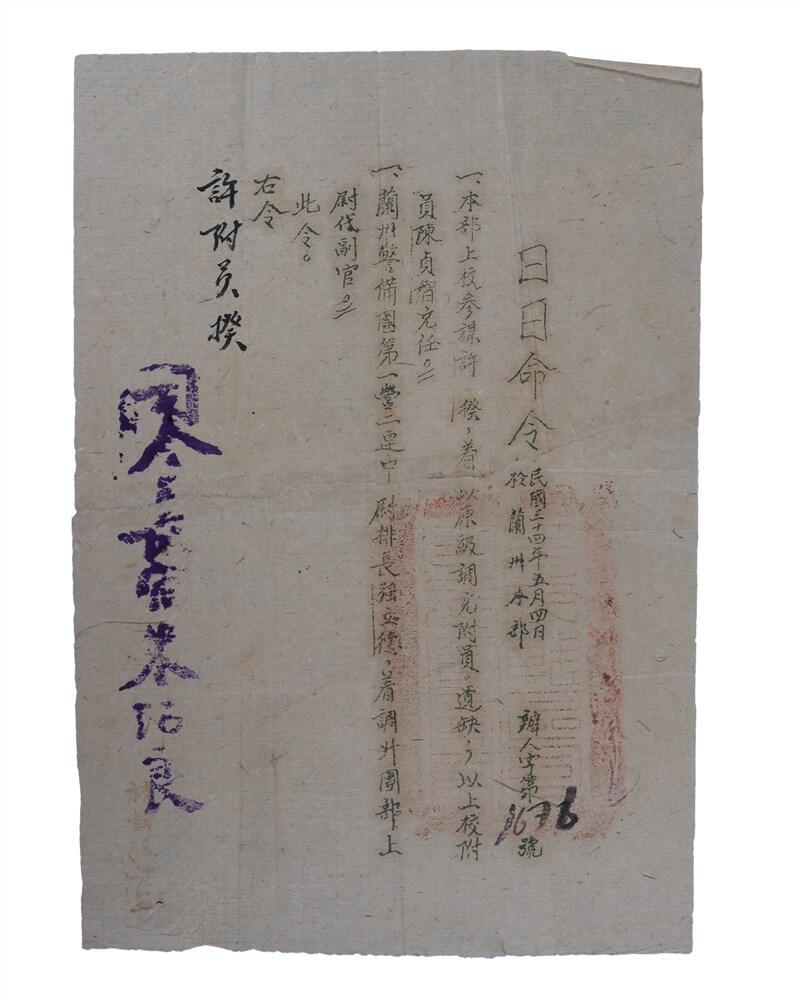 日日命令
民國三十四年五月四日
於蘭州本部
辦人字第1676號
一、本部上校參謀許揆，着以原級調充附員。遺缺，以上校附
員陳貞 充任。
一、蘭州警備團第一營二連中尉排長強立德，着調升團部上
尉代副官。
此令。
右令
許附員揆
兼
朱紹良